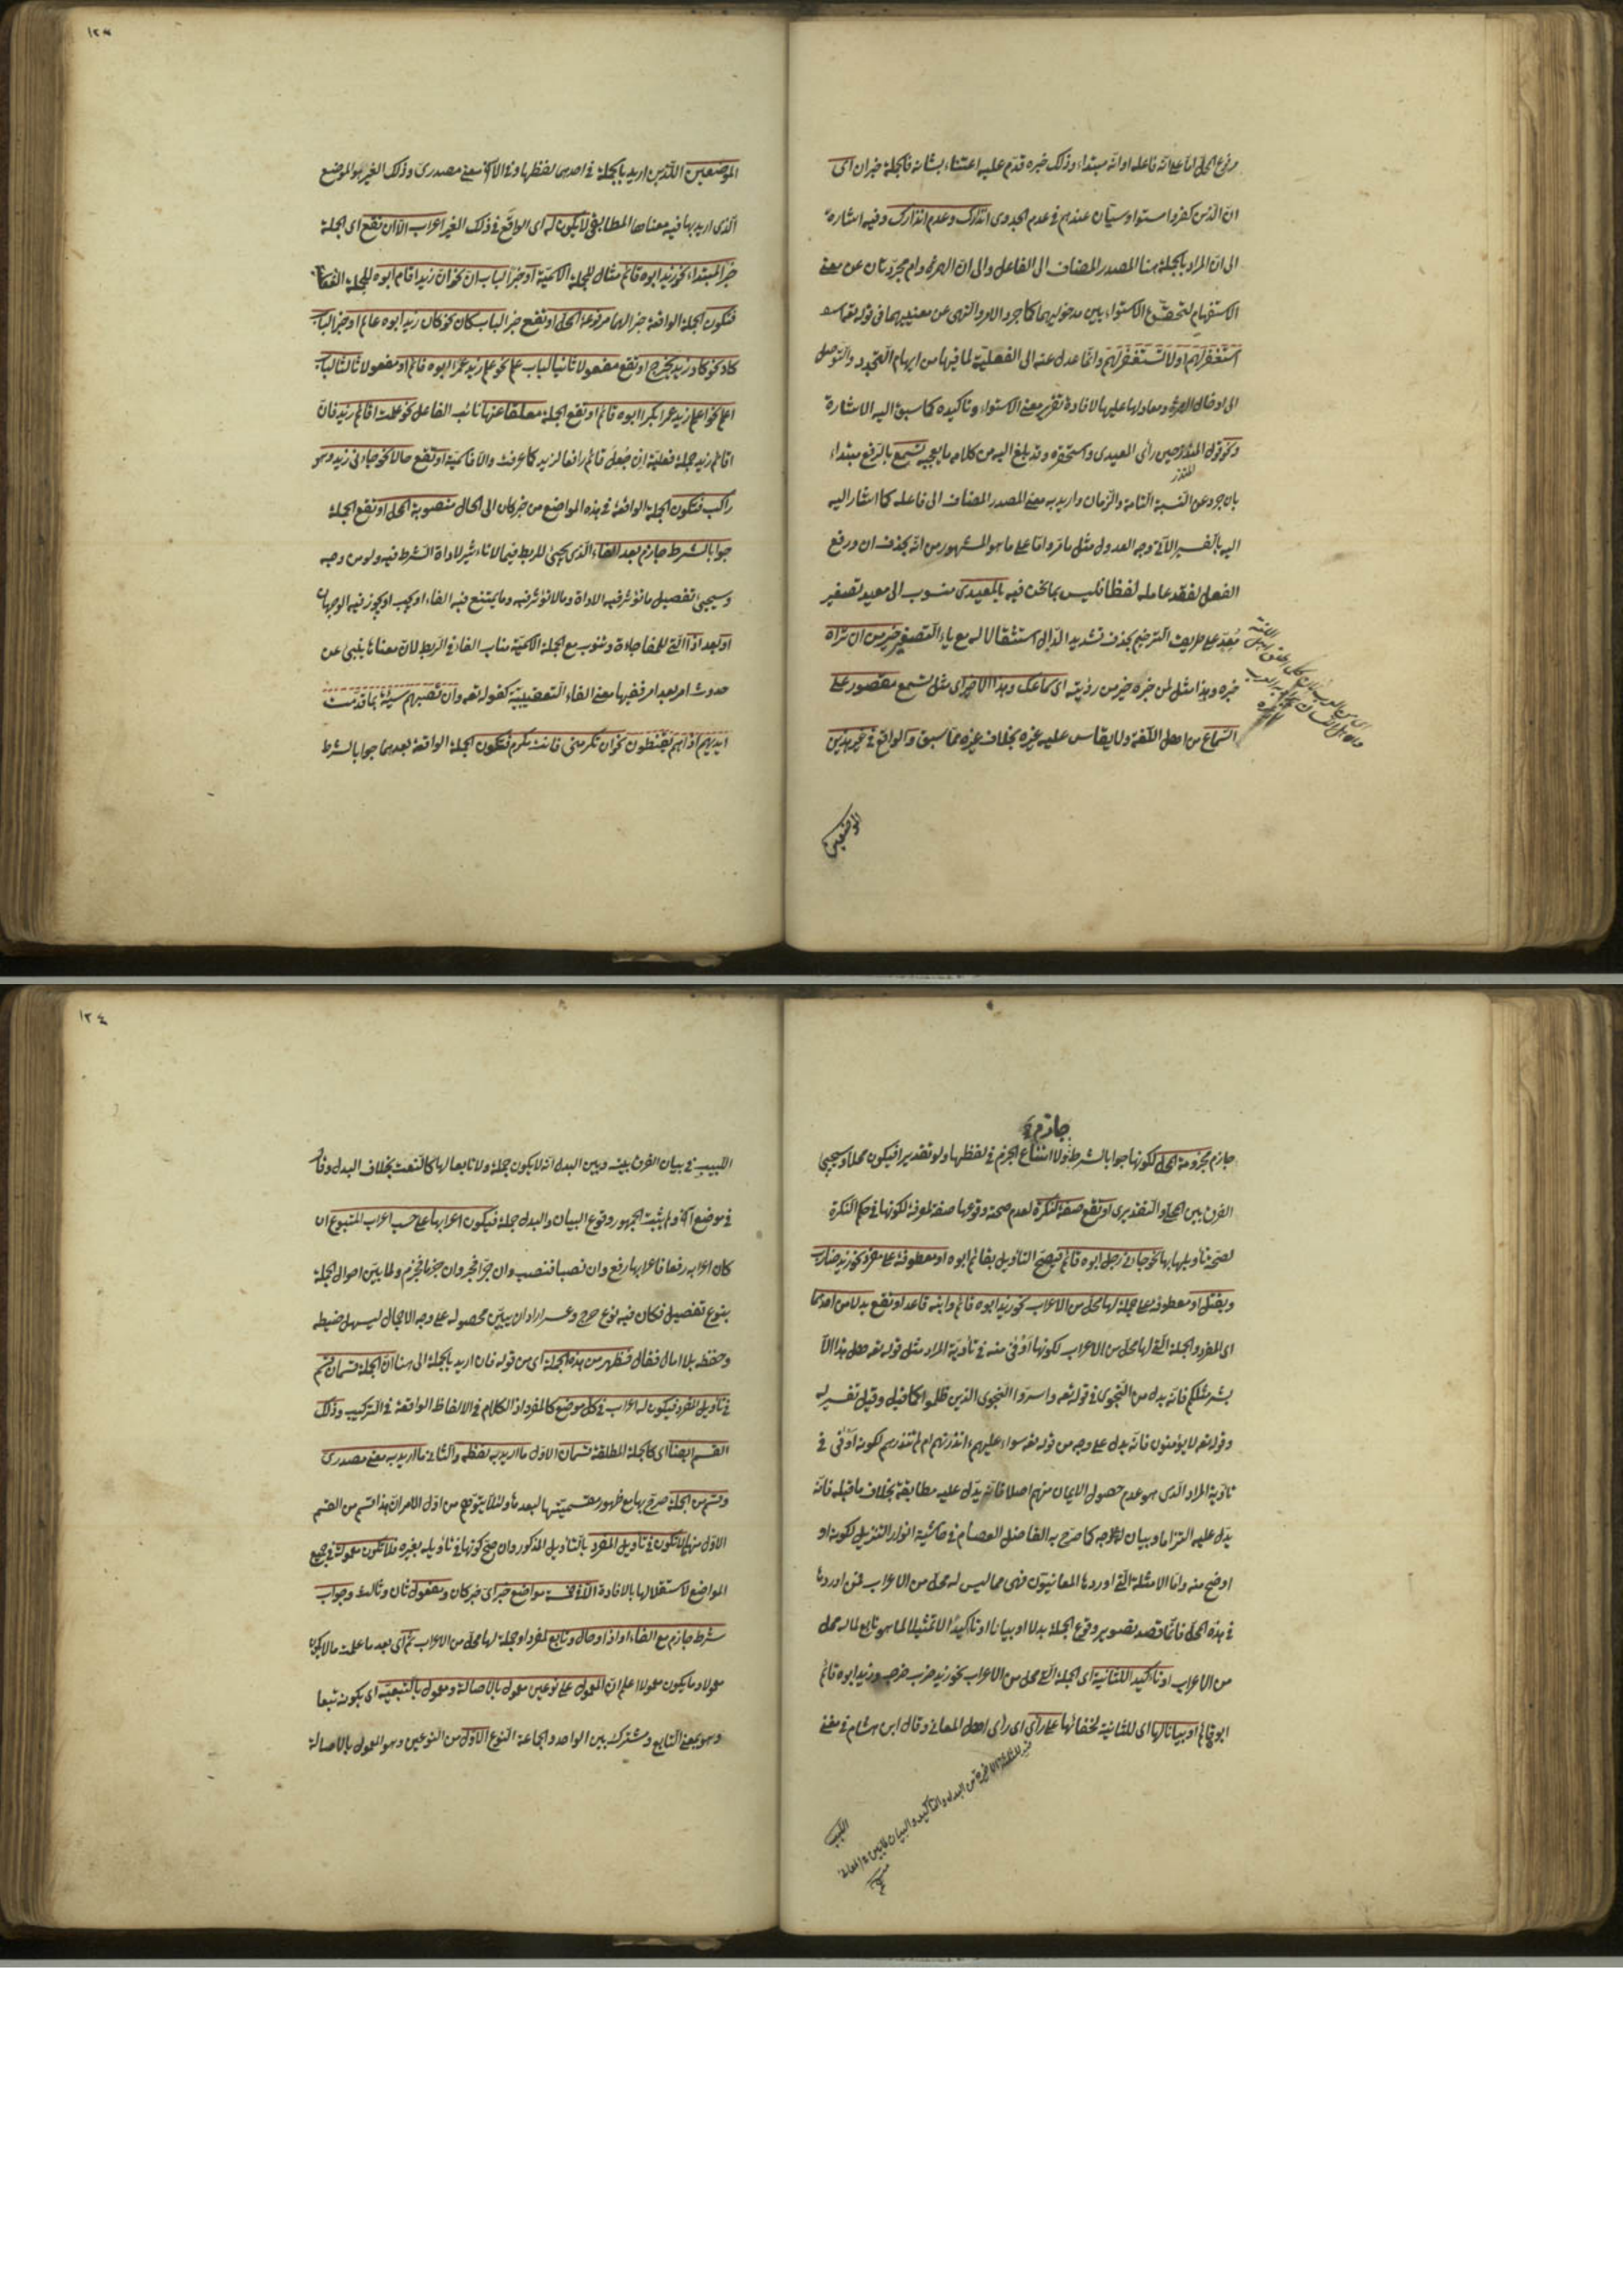 مرفوع المحل اما على انه فاعله او انه مبتداء وذلك خبره قدم عليه اعتناء بشانه فالجملة خبر ان اى
ان الذين كفروا مستو او سيان عندهم فى عدم الجدوى انذارك وعدم انذارك وفيه اشارة
الى ان المراد بالجملة هنا المصدر المضاف الى الفاعل والى ان الهمزة وام مجردتان عن معنى
الاستفهام لتحقق الاستواء بين مدخوليهما كما جرد الامر والنهى عن معنييهما فى قوله تعالى
استغفر لهم اولا تستغفر لهم وانما عدل عنه الى الفعلية لما فيها من ايهام التجدد والتوصل
الى ادخال الهمزة ومعادلها عليها لافادة تقرير معنى الاستواء وتاكيده كما سبق اليه الاشارة
ونحو قول المنذر حين راى المعيدى واستحقره وقد بلغ اليه من كلامه ما يعجبه تسمع بالرفع مبتداء
المنذر
بان جرد عن النسبة التامة والزمان واريد به معنى المصدر المضاف الى فاعله كما اشار اليه
اليه بالتفسير الآتى وجه العدول مثل ما مر واما على ما هو المشهور من انه بحذف ان ورفع
الفعل لفقد عامله لفظا فليس مما نحن فيه بالمعيدى منسوب الى معيد تصغير
معد على طريقة الترخيم بحذف تشديد الدال استثقالا له مع ياء التصغير خير من ان تراه
خبره وهذا مثل لمن خبره خير من رؤيته اى سماعك وهذا الاخير اى مثل تسمع مقصور على
السماع من اهل اللغة ولا يقاس عليه غيره بخلاف غيره مما سبق والواقع فى غير هذين
الموضعين
١٢٣
الموضعين اللذين اريد بالجملة فى احدهما لفظها وفى الآخر معنى مصدرى وذلك الغير هو الموضع
الذى اريد بها فيه معناها المطابقى لا يكون له اى الواقع فى ذلك الغير اعراب الا ان تقع اى الجملة
خبر المبتداء نحو زيد ابوه قائم مثال للجملة الاسمية او خبر الباب ان نحو ان زيدا قام ابوه للجملة الفعلية
فتكون الجملة الواقعة خبرا لهما مرفوعة المحل او تقع خبر الباب كان نحو كان زيد ابوه عالم او خبر الباب
كاد نحو كاد زيد يخرج او تقع مفعولا ثانيا لباب علم نحو علم زيد عمرا ابوه قائم او مفعولا ثالثا لباب
اعلم نحو اعلم زيد عمرا بكرا ابوه قائم او تقع الجملة معلقا عنها نائب الفاعل نحو علمت اقائم زيد فان
اقائم زيد جملة فعلية ان جعل قائم رافعا لزيد كما عرفت والا فاسمية او تقع حالا نحو جاءنى زيد وهو
راكب فتكون الجملة الواقعة فى هذه المواضع من خبر كان الى الحال منصوبة المحل او تقع الجملة
جوابا لشرط جازم بعد الفاء الذى يجيئ للربط فيما لا تاءثير لاداة الشرط فيه ولو من وجه
وسيجيئ تفصيل ما تؤثر فيه الاداة وما لا تؤثر فيه وما يمتنع فيه الفاء او يجب او يجوز فيه الوجهان
او بعد اذا التى للمفاجاءة وتنوب مع الجملة الاسمية مناب الفاء فى الربط لان معناها ينبئ عن
حدوث امر بعد امر ففيها معنى الفاء التعقيبية كقوله تعالى وان تصبهم سيئة بما قدمت
ايديهم اذا هم يقنطون نحو ان تكرمنى فانت مكرم فتكون الجملة الواقعة بعدهما جوابا لشرط
جازم
جازم مجزومة المحل لكونها جوابا لشرط ولا امتناع الجزم فى لفظها ولو تقديرا فيكون محلا وسيجيئ
الفرق بين المحلى والتقديرى او تقع صفة للنكرة لعدم صحة وقوعها صفة لمعرفة لكونها فى حكم النكرة
لصحة تاويلها بها نحو جاءنى رجل ابوه قائم فيصح التاويل بقائم ابوه او معطوفة على مفرد نحو زيد ضارب
ويقتل او معطوفة على جملة لها محل من الاعراب نحو زيد ابوه قائم وابنه قاعد او تقع بدلا من احدهما
اى المفرد والجملة التى لها محل من الاعراب لكونها اوفى منه فى تاءدية المراد مثل قوله تعالى هل هذا الا
بشر مثلكم فانه بدل من النجوى فى قوله تعالى واسروا النجوى الذين ظلموا كما قيل وقيل تفسير له
وقوله تعالى لا يؤمنون فانه بدل على وجه من قوله تعالى سواء عليهم ءانذرتهم ام لم تنذرهم لكونه اوفى فى
تاءدية المراد الذى هو عدم حصول الايمان منهم اصلا فانه يدل عليه مطابقة بخلاف ما قبله فانه
يدل عليه التزاما وبيان كما صرح به الفاضل العصام فى حاشية انوار التنزيل لكونه او
اوضح منه واما الامثلة التى اوردها المعانيون فهى مما ليس له محل من الاعراب فمن اوردها
فى هذه المحل فانما قصد تصوير وقوع الجملة بدلا او بيانا او تاكيدا لا تمثيلا لما هو تابع لما له محل
من الاعراب او تاكيد الثانية اى الجملة التى محل من الاعراب نحو زيد ضرب ضرب وزيد ابوه قائم
ابوه قائم او بيانا لها اى للثانية لخفائها على رأى اى رأى اهل المعانى وقال ابن هشام فى مغنى
اللبيب
١٢٤
اللبيب فى بيان الفرق بينه وبين البدل انه لا يكون جملة ولا تابعا لها كالنعت بخلاف البدل وقال
فى موضع آخر ولم يثبت الجمهور وقوع البيان والبدل جملة فيكون اعرابها على حسب اعراب المتبوع ان
كان اعرابه رفعا فاعرابها رفع وان نصبا فنصب وان جرا فجر وان جزما فجزم ولما بين احوال الجملة
بنوع تفصيل فكان فيه نوع حرج وعسر اراد ان يبين محصوله على وجه الاجمال ليسهل ضبطه
وحفظه بلا امال فقال فظهر من هذه الجملة اى من قوله فان اريد بالجملة الى هنا ان الجملة قسمان قسم
فى تاويل المفرد فيكون له اعراب فى كل موضع كالمفرد اذ الكلام فى الالفاظ الواقعة فى التركيب وذلك
القسم ايضا اى كالجملة المطلقة قسمان الاول ما اريد به لفظه والثانى ما اريد به معنى مصدرى
وقسم من الجملة صرح بها مع ظهور مقسميتها لبعدها ولئلا يتوهم من اول الامر ان هذا قسم من القسم
الاول منها لا تكون فى تاويل المفرد بالتاويل المذكور وان صح كونها فى تاويله بغيره فلا تكون معمولة فى جميع
المواضع لاستقلالها بالافادة الا فى خمسة مواضع خبر اى خبر كان ومفعول ثان وثالث وجواب
شرط جازم مع الفاء او اذا وحال وتابع لمفرد او جملة لها محل من الاعراب ثم اى بعد ما علمت ما لا يكون
معمولا وما يكون معمولا اعلم ان المعمول على نوعين معمول بالاصالة ومعمول بالتبعية اى بكونه تبعا
وهو بمعنى التابع ومشترك بين الواحد والجماعة النوع الاول من النوعين وهو المعمول بالاصالة